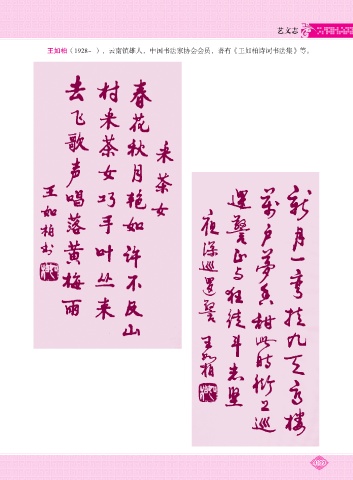 艺文志
王如柏（1928- ），云南镇雄人，中国书法家协会会员，著有《王如柏诗词书法集》等。
采茶女
春花秋月艳如许不及山
村采茶女巧手叶丛来
去飞歌声唱落黄梅雨
王如柏书
新月一弯挂九天高楼
万户梦香甜此时街上巡
逻警正与狂徒斗志坚
夜深巡逻警 王如柏